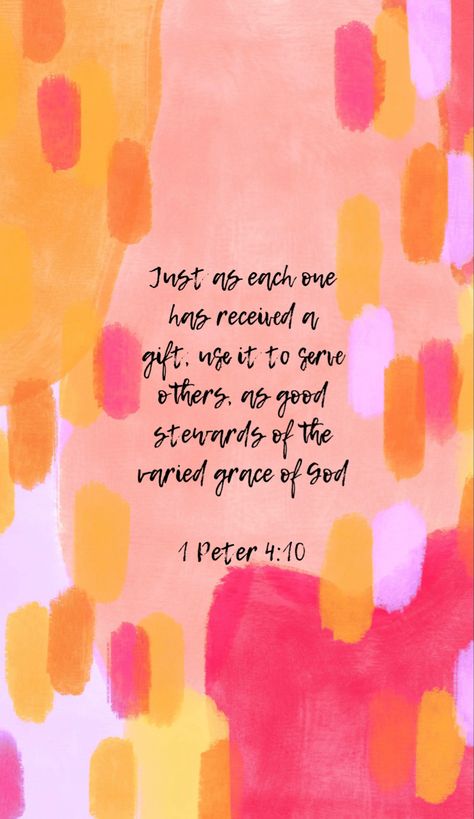 Just as each one
has received a
gift, use it to serve
others, as good
stewards of the
varied grace of God
1 Peter 4:10